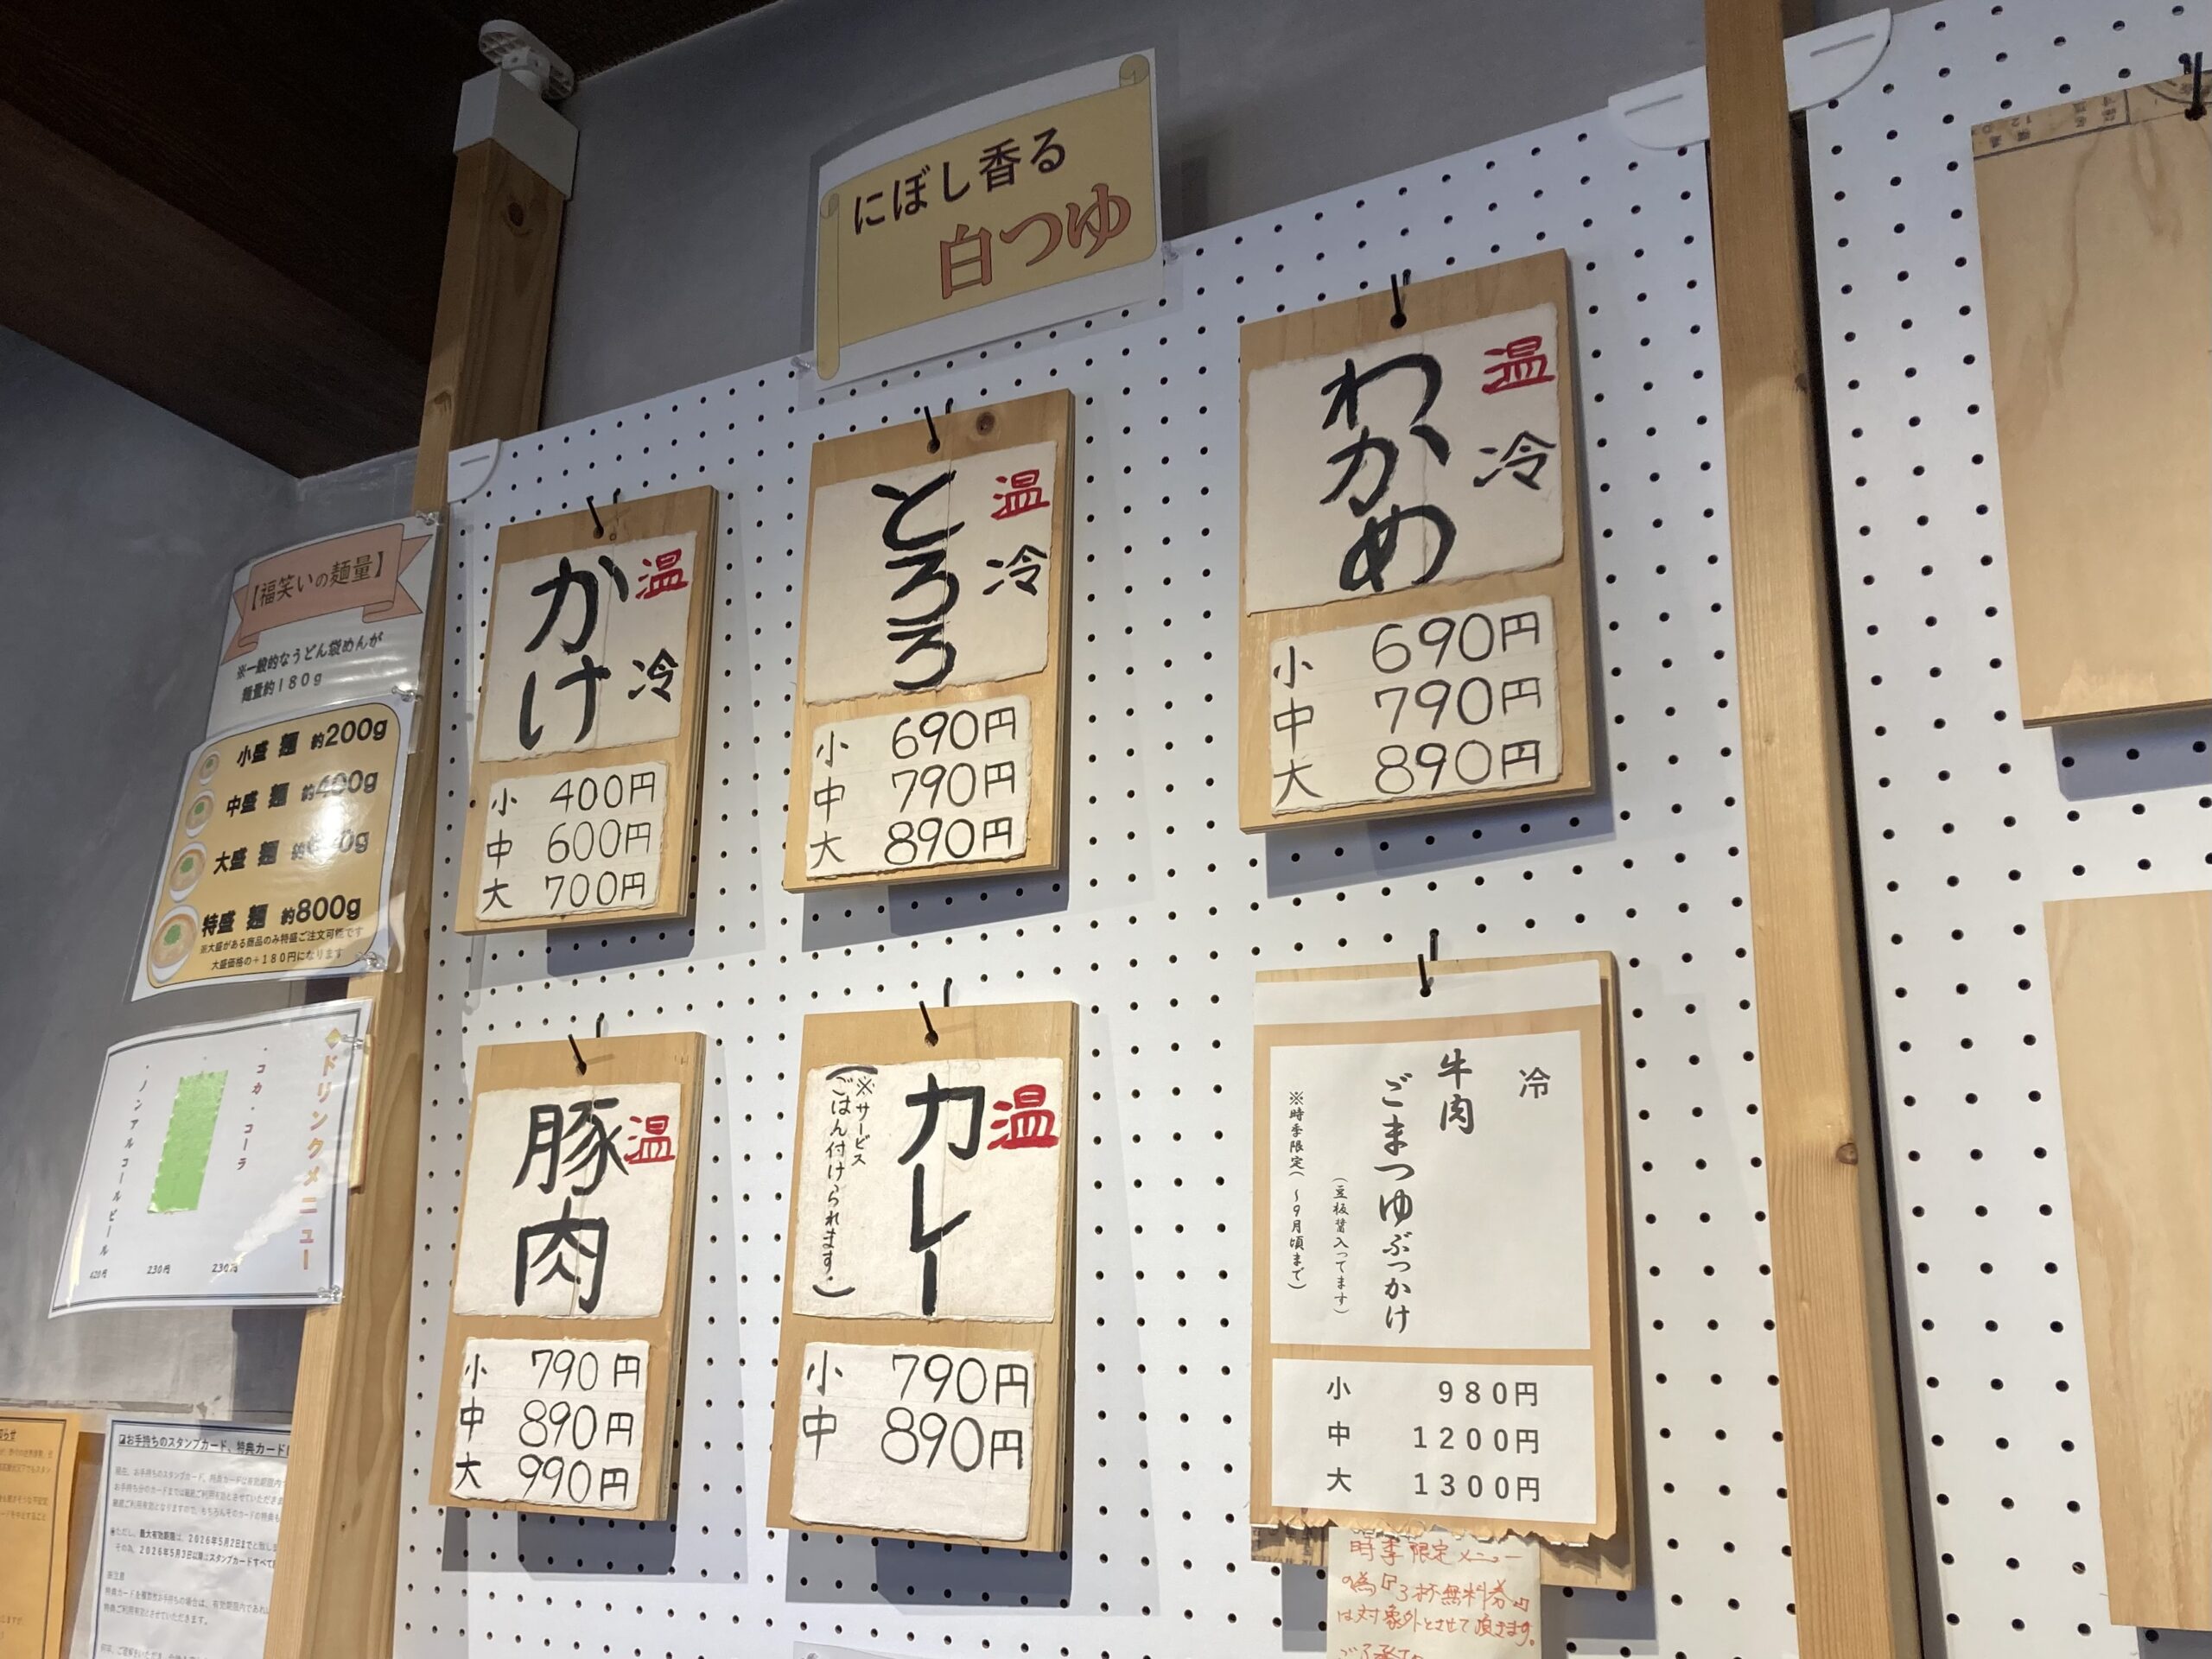 にぼし香る
白つゆ
【福笑いの麺量】
※一般的なうどん袋めんが
麺量約180g
小盛 麺 約200g
中盛 麺 約400g
大盛 麺
特盛 麺 約800g
※大盛がある商品のみ特盛ご注文可能です
大盛価格の+180円になります
◆ドリンクメニュー
・コカ・コーラ
230円
230円
・ノンアルコールビール
420円
かけ
温
冷
小 400円
中 600円
大 700円
とろろ
温
冷
小 690円
中 790円
大 890円
わかめ
温
冷
小 690円
中 790円
大 890円
豚肉
温
小 790円
中 890円
大 990円
温
カレー
(※サービス
ごはん付けられます。)
小 790円
中 890円
冷
牛肉
ごまつゆぶっかけ
(豆板醤入ってます)
※時季限定(~9月頃まで)
小 980円
中 1200円
大 1300円
時季限定メニュー
の為『3杯無料券』
は対象外とさせて頂きます。
お手持ちのスタンプカード、特典カード
ただし、最大有効期限は、2026年5月2日まで
その為、2026年5月3日以降はスタンプカードすべて